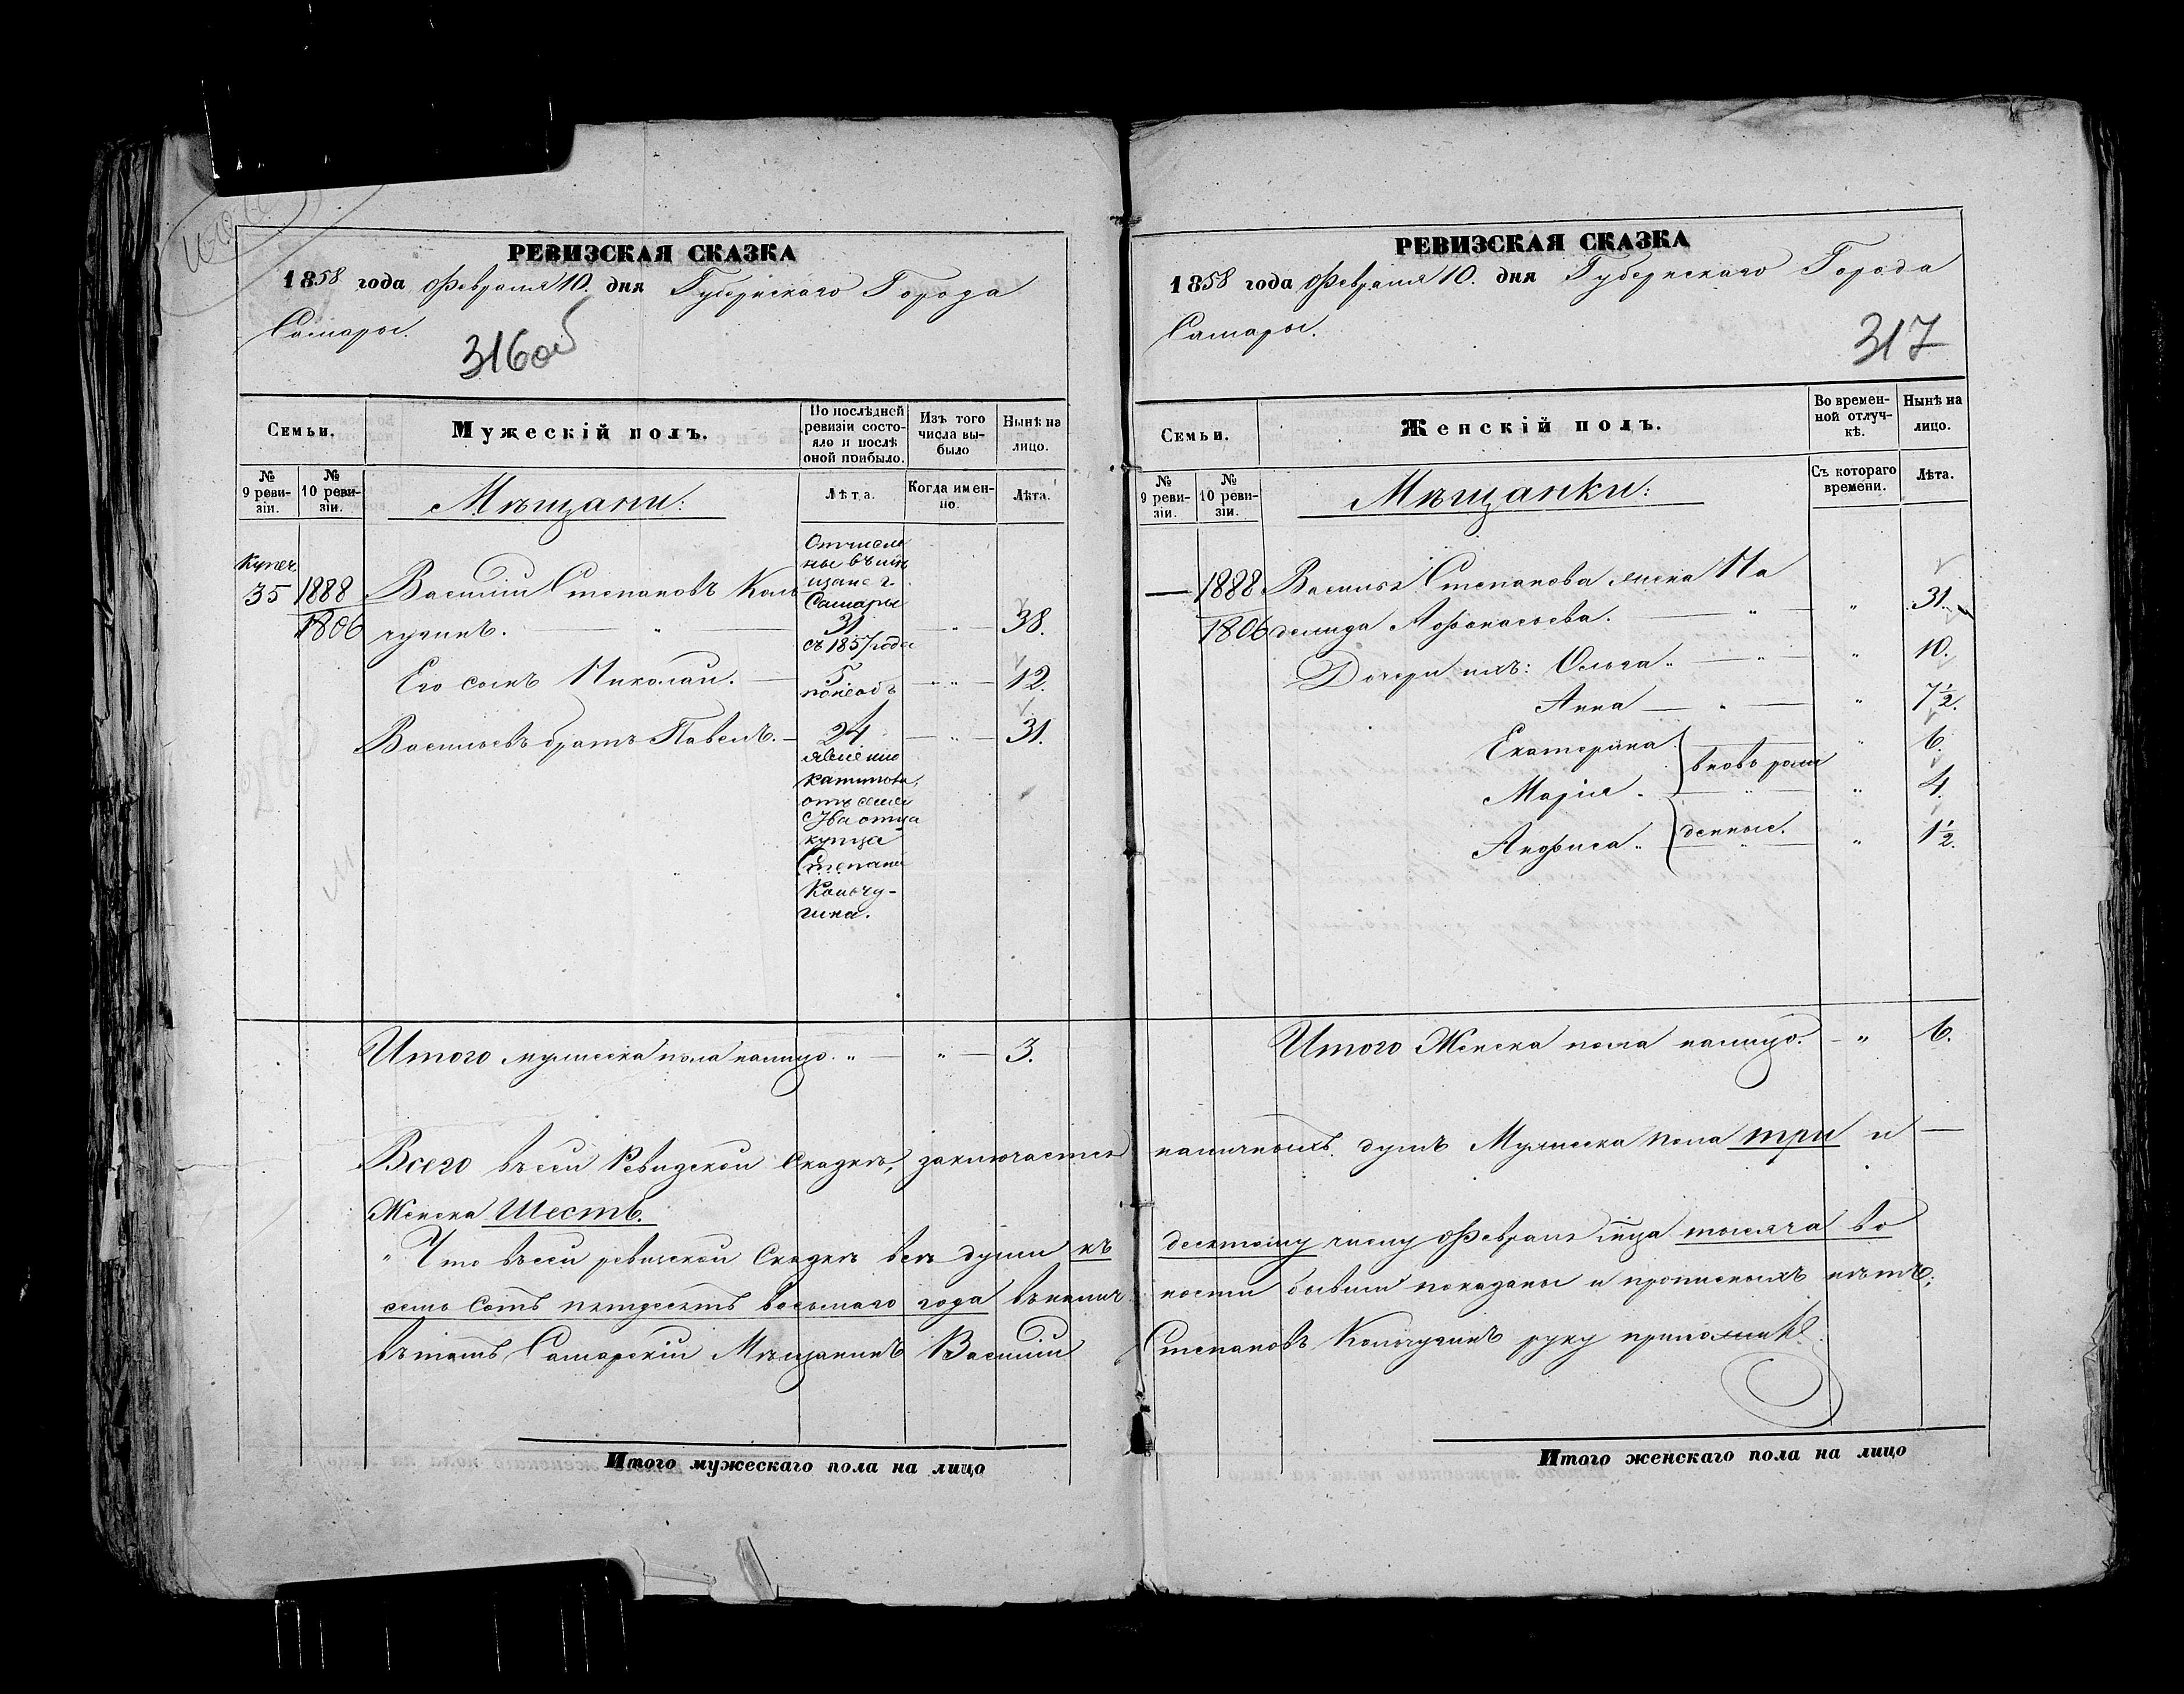 РЕВИЗСКАЯ СКАЗКА
1858 года Февраля 10. дня Губернскаго Города
Самары.
316об
Семьи.
Мужескій полъ.
По послѣдней ревизіи состояло и послѣ оной прибыло.
Изъ того числа выбыло
Нынѣ на лицо.
№ 9 ревизіи.
№ 10 ревизіи.
Мѣщани:
Лѣта.
Когда именно.
Лѣта.
Купеч.
35 1888 Василій Степановъ Коль
1806 чугинъ. — " — 38.
Отчисле
ны въ мѣ
щане г.
Самары
31
съ 1857 года
Его сынъ Николай. — 5 — " — 12.
Васильевъ братъ Павелъ. — 24 — " — 31.
отъ семей
ства отца
купца
Степана
Кольчу-
гина.
Итого мужеска пола налицо. " — " — 3.
Всего въ сей Ревизской Сказкѣ, заключается
Женска Шесть.
" Что въ сей ревизской Сказкѣ всѣ души къ
семь сотъ пятдесятъ восьмаго года въ налич
въ томъ Самарскій Мѣщанинъ Василій
Итого мужескаго пола на лицо
РЕВИЗСКАЯ СКАЗКА
1858 года Февраля 10. дня Губернскаго Города
Самары.
317
Семьи.
Женскій полъ.
Во временной отлучкѣ.
Нынѣ на лицо.
№ 9 ревизіи.
№ 10 ревизіи.
Мѣщанки:
Съ котораго времени.
Лѣта.
— 1888 Василья Степанова жена На
1806 дежда Афонасьева. — " — " 31.
Дочери ихъ: Ольга " — " — " 10.
Анна — " — " 7½.
Екатерина } " 6.
вновь рож
Марія " " 4.
денные.
Анфиса " } " 1½.
Итого Женска пола налицо. — " 6.
наличныхъ душъ Мужеска пола три и —
десятому числу Февраля м̃ца тысяча во
ности бывши показаны и прописныхъ нѣтъ;
Степановъ Кольчугинъ руку приложилъ.
Итого женскаго пола на лицо